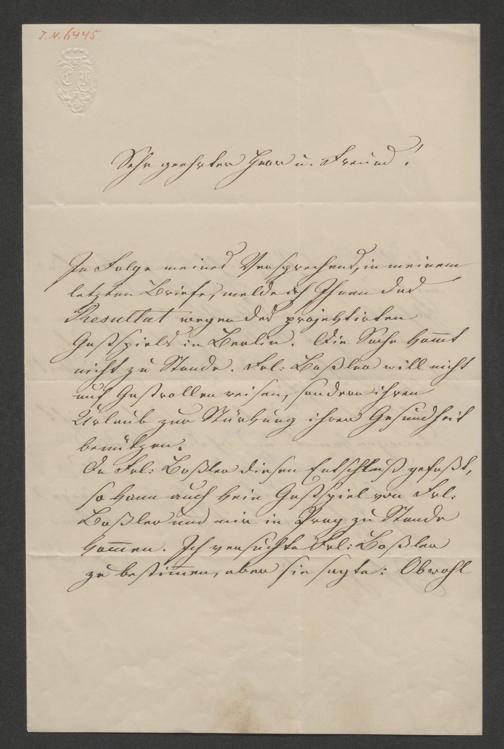 J.N. 6445
Sehr geehrter Herr u. Freund!
In Folge meines Versprechens, in meinem
letzten Briefe, melde ich Ihnen das
Resultat wegen des projektirten
Gastspiels in Berlin. Die Sache kommt
nicht zu Stande. Frl: Boßler will nicht
auf Gastrollen reisen, sondern ihren
Urlaub zur Stärkung ihrer Gesundheit
benützen.
Da Frl: Boßler diesen Entschluß gefaßt,
so kann auch kein Gastspiel von Frl.
Boßler und mir in Prag zu Stande
kommen. Ich versuchte Frl: Boßler
zu bestimmen, aber sie sagte: Obwohl